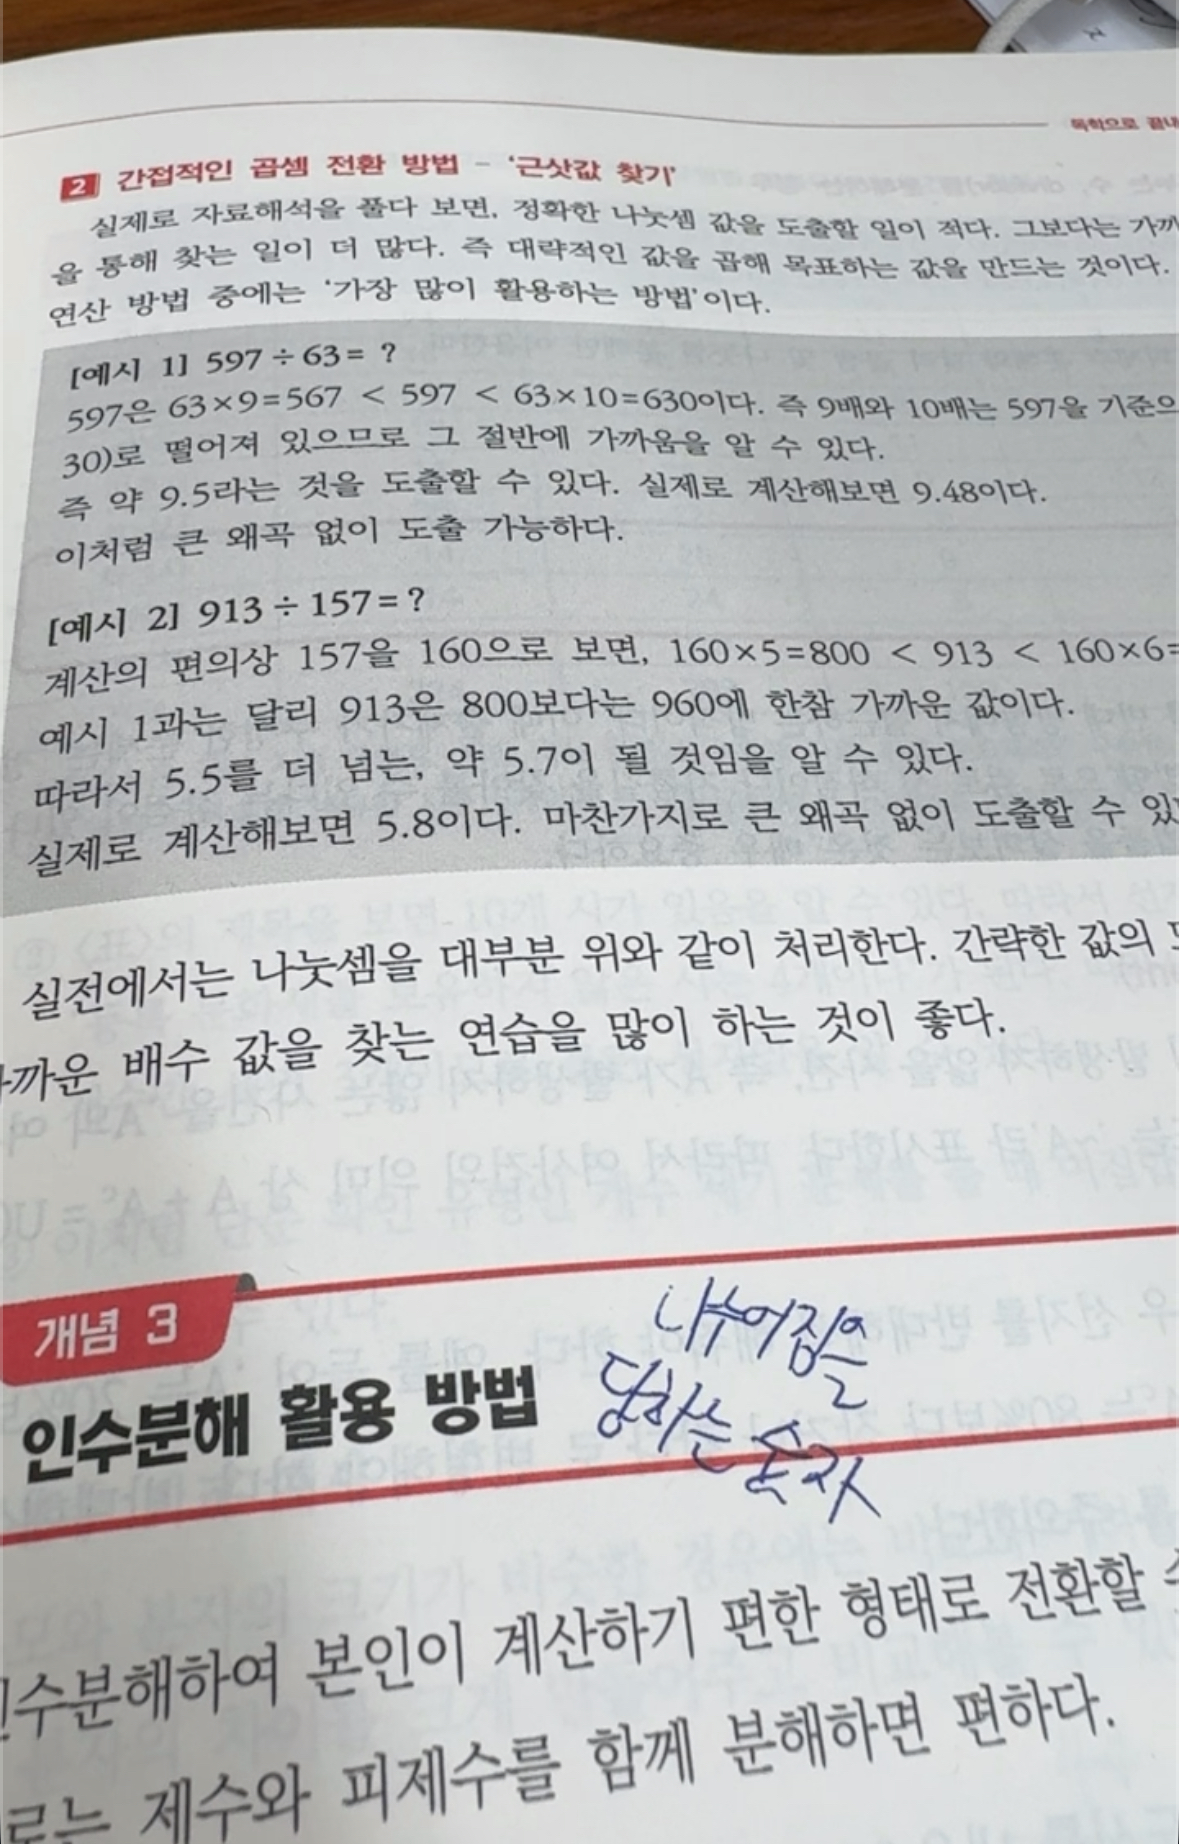 독학으로 끝내
2 간접적인 곱셈 전환 방법 - '근삿값 찾기'
실제로 자료해석을 풀다 보면, 정확한 나눗셈 값을 도출할 일이 적다. 그보다는 가까
을 통해 찾는 일이 더 많다. 즉 대략적인 값을 곱해 목표하는 값을 만드는 것이다.
연산 방법 중에는 '가장 많이 활용하는 방법'이다.
[예시 1] 597÷63= ?
597은 63×9=567 < 597 < 63×10=630이다. 즉 9배와 10배는 597을 기준으
30)로 떨어져 있으므로 그 절반에 가까움을 알 수 있다.
즉 약 9.5라는 것을 도출할 수 있다. 실제로 계산해보면 9.48이다.
이처럼 큰 왜곡 없이 도출 가능하다.
[예시 2] 913÷157= ?
계산의 편의상 157을 160으로 보면, 160×5=800 < 913 < 160×6=
예시 1과는 달리 913은 800보다는 960에 한참 가까운 값이다.
따라서 5.5를 더 넘는, 약 5.7이 될 것임을 알 수 있다.
실제로 계산해보면 5.8이다. 마찬가지로 큰 왜곡 없이 도출할 수 있
실전에서는 나눗셈을 대부분 위와 같이 처리한다. 간략한 값의
까운 배수 값을 찾는 연습을 많이 하는 것이 좋다.
개념 3
인수분해 활용 방법
나누어짐을
당하는 숫자
인수분해하여 본인이 계산하기 편한 형태로 전환할 수
로는 제수와 피제수를 함께 분해하면 편하다.